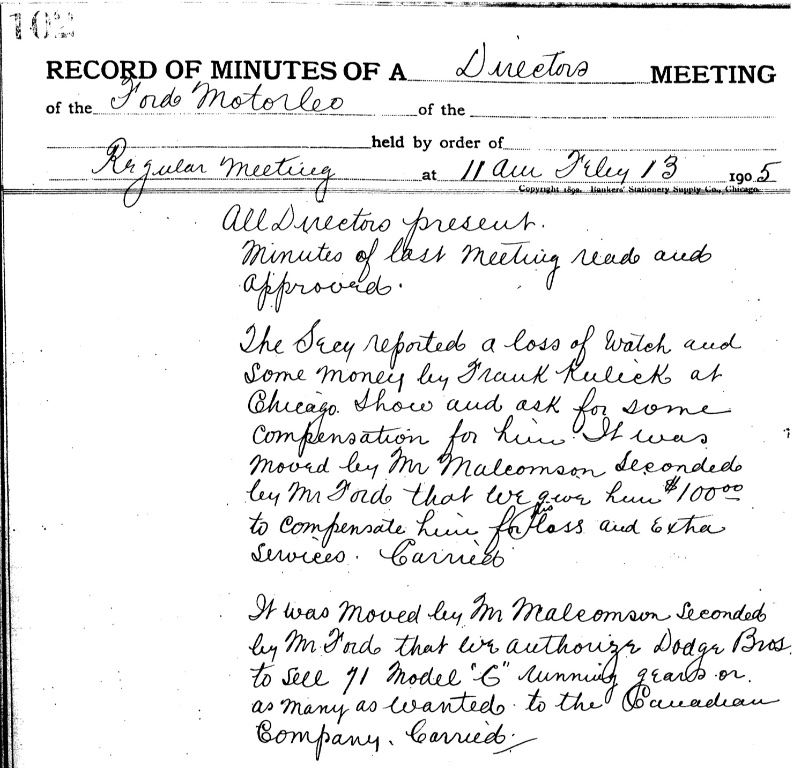 102
RECORD OF MINUTES OF A Directors MEETING
of the Ford Motor Co of the
held by order of
Regular Meeting at 11 am Feby 13 1905
Copyright 1892. Bankers' Stationery Supply Co., Chicago.
All Directors present.
Minutes of last Meeting read and
approved.
The Secy reported a loss of Watch and
some money by Frank Kulick at
Chicago Show and ask for some
compensation for him. It was
moved by Mr Malcomson Seconded
by Mr Ford that we give him $100.00
to compensate him for his loss and Extra
Services. Carried
It was moved by Mr Malcomson Seconded
by Mr Ford that we authorize Dodge Bros.
to sell 71 Model "C" running gears or
as many as wanted to the Canadian
Company. Carried.